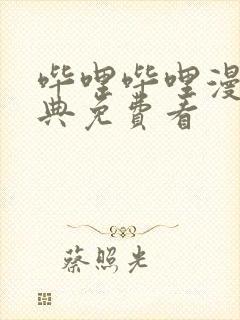 哔哩哔哩漫
典免费看
蔡照光